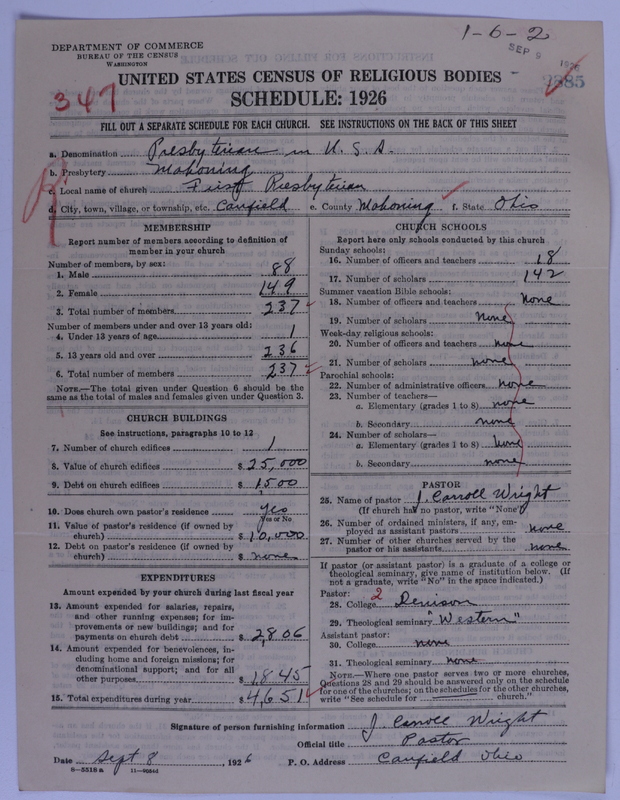 1-6-2
DEPARTMENT OF COMMERCE
BUREAU OF THE CENSUS
WASHINGTON
SEP 9 1926
2385
347
UNITED STATES CENSUS OF RELIGIOUS BODIES
SCHEDULE: 1926
FILL OUT A SEPARATE SCHEDULE FOR EACH CHURCH. SEE INSTRUCTIONS ON THE BACK OF THIS SHEET
a. Denomination Presbyterian in U.S.A.
b. Presbytery Mahoning
c. Local name of church First Presbyterian
d. City, town, village, or township, etc. Canfield e. County Mahoning f. State Ohio
MEMBERSHIP
Report number of members according to definition of member in your church
Number of members, by sex:
1. Male 88
2. Female 149
3. Total number of members 237
Number of members under and over 13 years old:
4. Under 13 years of age 1
5. 13 years old and over 236
6. Total number of members 237
NOTE.—The total given under Question 6 should be the same as the total of males and females given under Question 3.
CHURCH BUILDINGS
See instructions, paragraphs 10 to 12
7. Number of church edifices 1
8. Value of church edifices $25,000
9. Debt on church edifices $1,500
10. Does church own pastor's residence yes
Yes or No
11. Value of pastor's residence (if owned by church) $10,000
12. Debt on pastor's residence (if owned by church) $none
EXPENDITURES
Amount expended by your church during last fiscal year
13. Amount expended for salaries, repairs, and other running expenses; for improvements or new buildings; and for payments on church debt $2,806
14. Amount expended for benevolences, including home and foreign missions; for denominational support; and for all other purposes $1845
15. Total expenditures during year $4,651
CHURCH SCHOOLS
Report here only schools conducted by this church
Sunday schools:
16. Number of officers and teachers 18
17. Number of scholars 142
Summer vacation Bible schools:
18. Number of officers and teachers None
19. Number of scholars none
Week-day religious schools:
20. Number of officers and teachers none
21. Number of scholars none
Parochial schools:
22. Number of administrative officers none
23. Number of teachers—
a. Elementary (grades 1 to 8) none
b. Secondary none
24. Number of scholars—
a. Elementary (grades 1 to 8) none
b. Secondary none
PASTOR
25. Name of pastor J. Carroll Wright
(If church has no pastor, write "None")
26. Number of ordained ministers, if any, employed as assistant pastors none
27. Number of other churches served by the pastor or his assistants none
If pastor (or assistant pastor) is a graduate of a college or theological seminary, give name of institution below. (If not a graduate, write "No" in the space indicated.)
Pastor: 2
28. College Denison
29. Theological seminary "Western"
Assistant pastor:
30. College none
31. Theological seminary none
NOTE.—Where one pastor serves two or more churches, Questions 28 and 29 should be answered only on the schedule for one of the churches; on the schedules for the other churches, write "See schedule for church."
Signature of person furnishing information J. Carroll Wright
Official title Pastor
Date Sept 8, 1926 P. O. Address Canfield Ohio
8-5518a